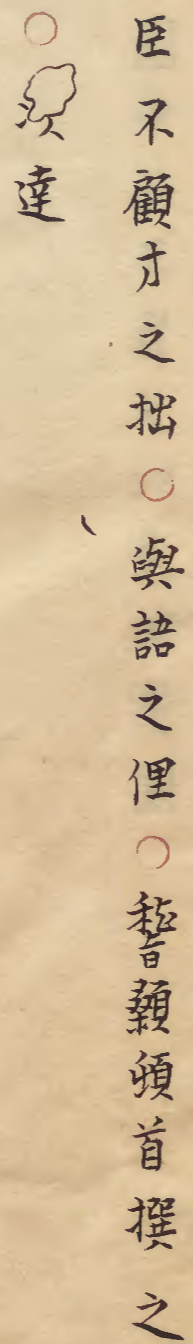 臣不顧才之拙○與語之俚○稽顙頓首撰之
○達